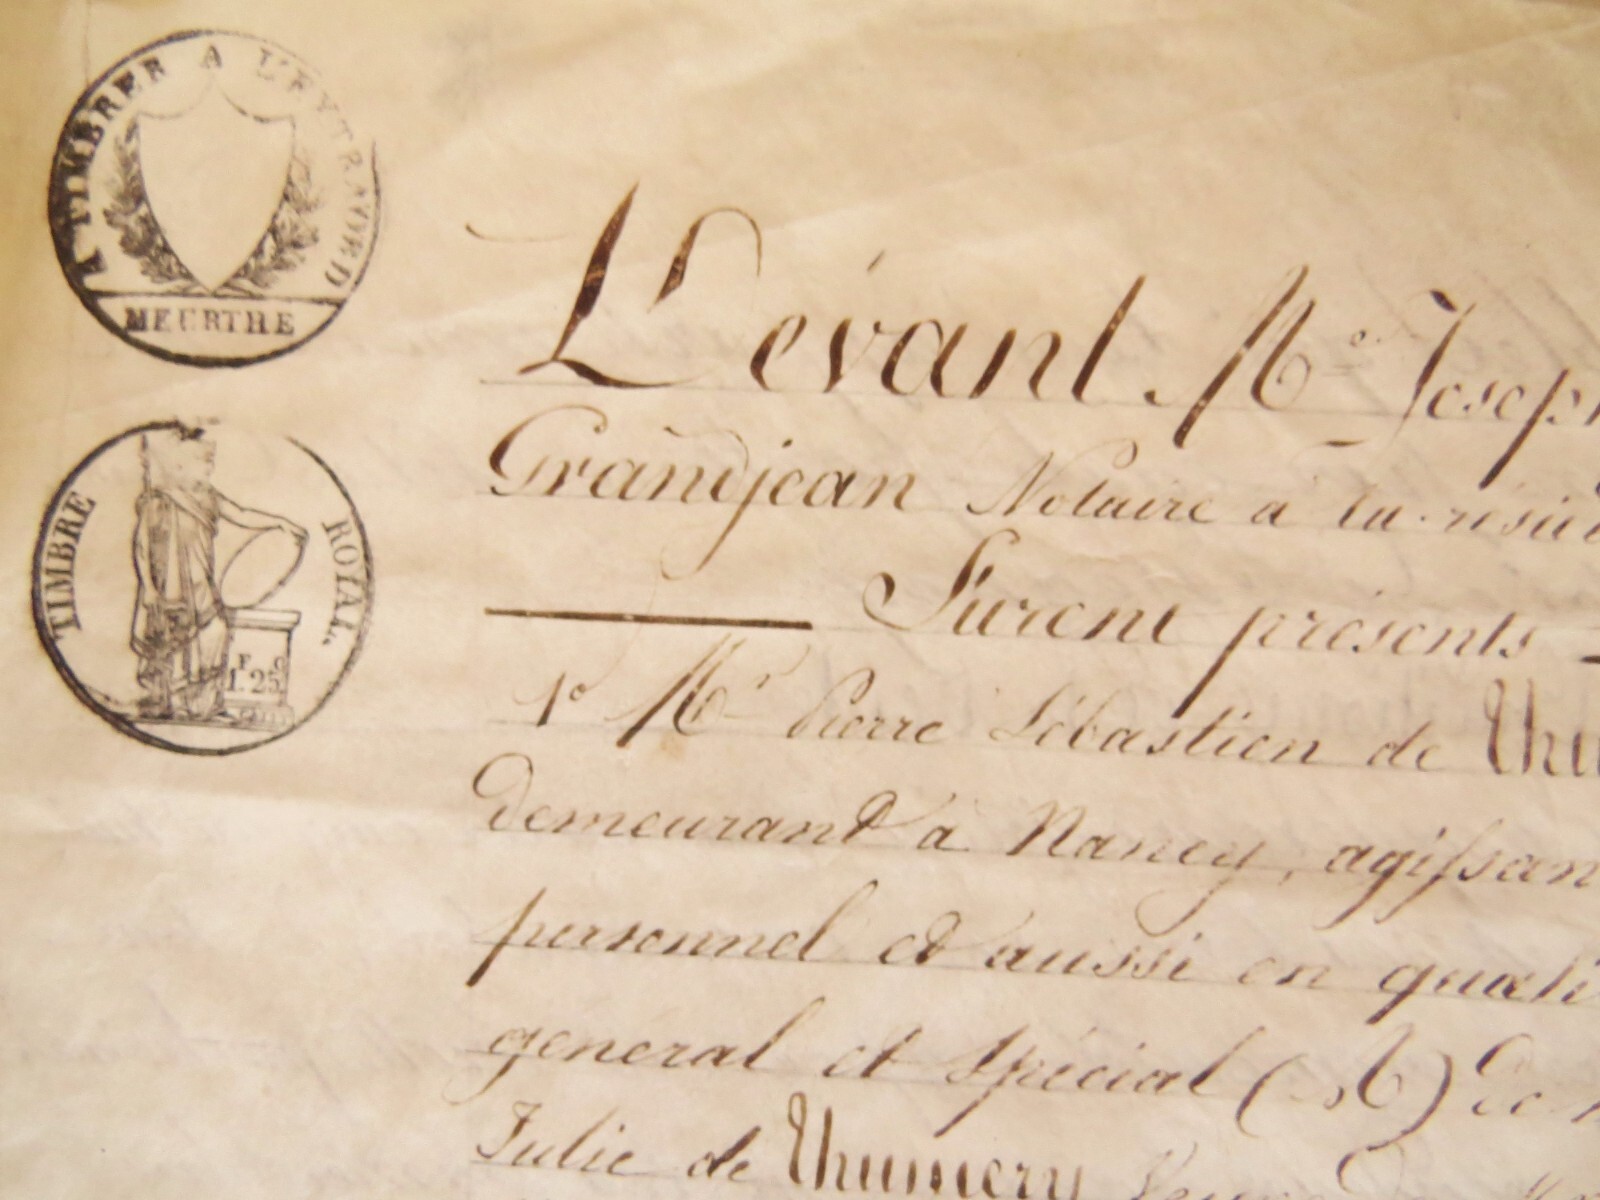 A TIMBRER A L'EXTRAORD
MEURTHE
TIMBRE ROYAL.
F C
1.25
Devant Me Joseph
Grandjean Notaire à la résid
Furent présents
1o Mr Pierre Sébastien de Thu
demeurant à Nancy, agissan
personnel et aussi en quali
général et spécial (A) de
Julie de Thumery